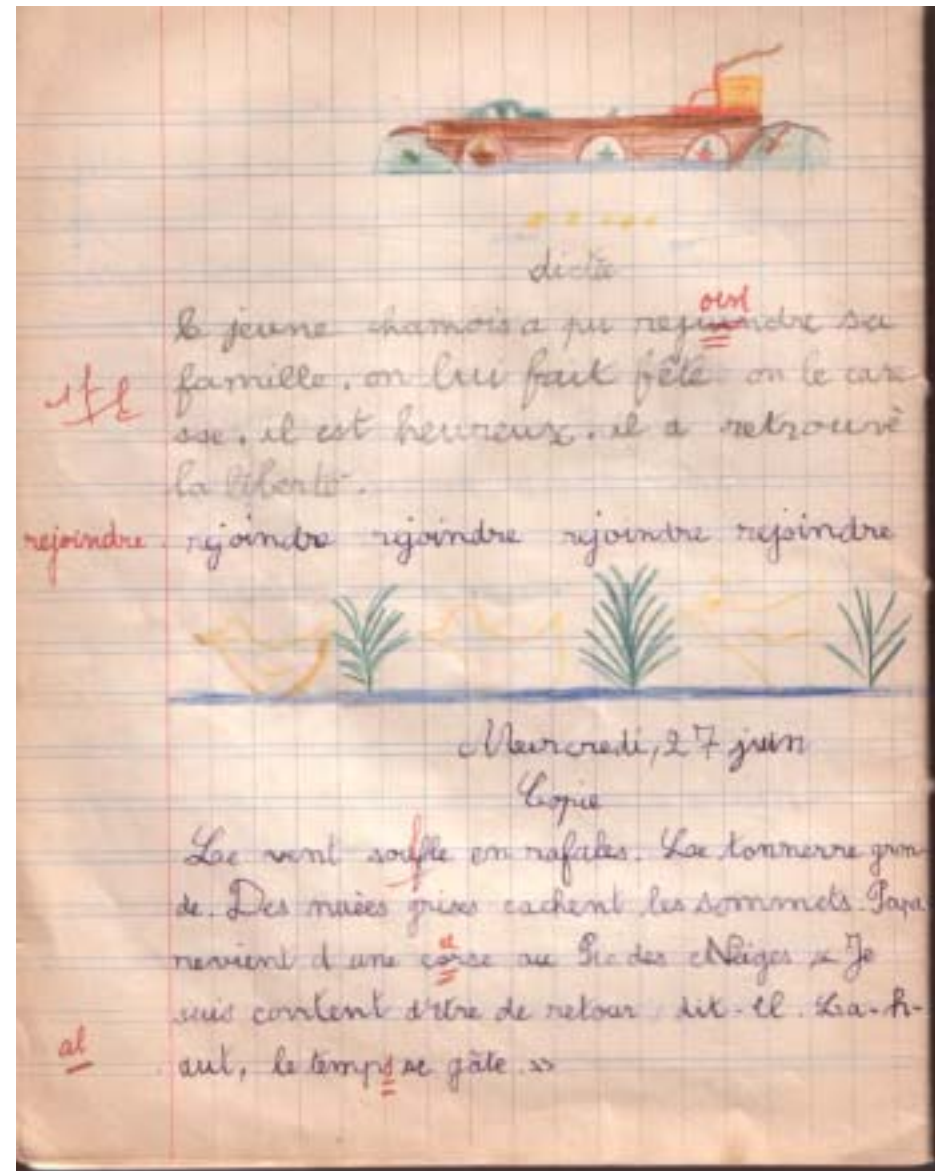 dictée
le jeune chamois a pu rejuindre sa
famille. on lui fait fête on le care
sse. il est heureux. il a retrouvé
la liberté.
rejoindre rejoindre rejoindre rejoindre rejoindre
Mercredi, 27 juin
Copie
Le vent souffle en rafales. Le tonnerre gron
de. Des nuées grises cachent les sommets. Papa
revient d'une corse au Pic des Neiges « Je
suis content d'être de retour dit-il. La-h-
aut, le temps se gâte »